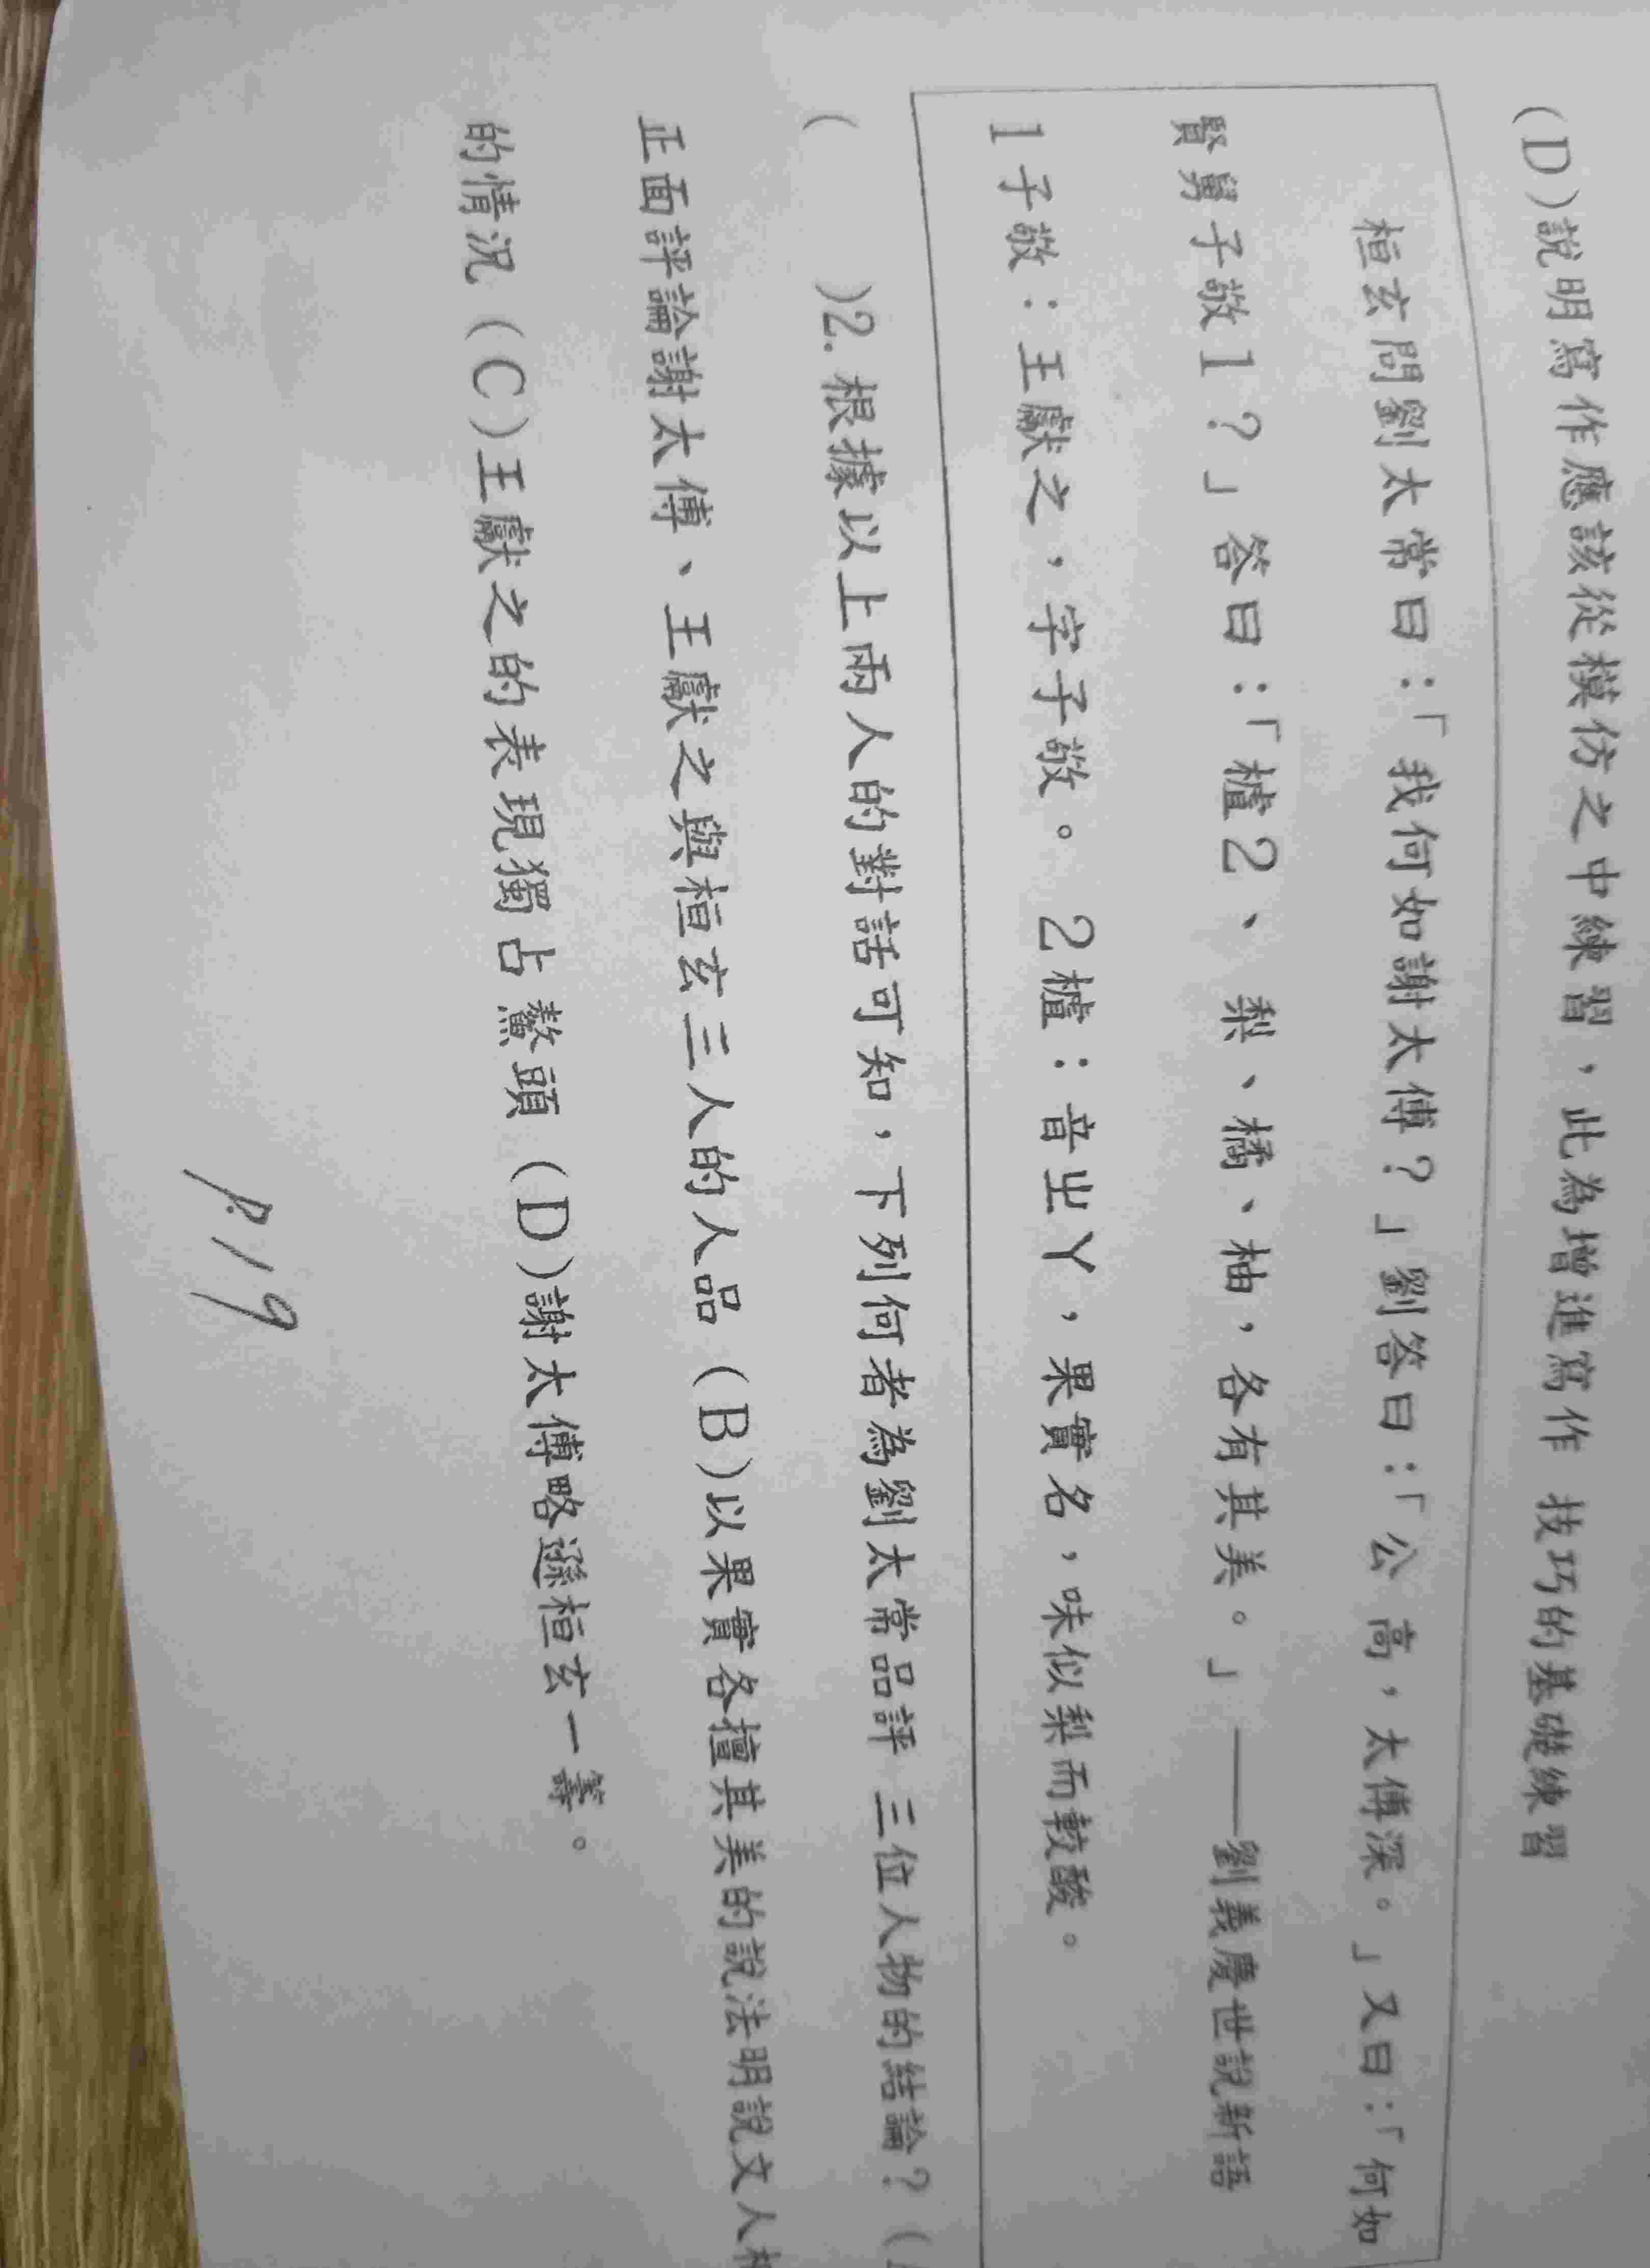 (D)說明寫作應該從模仿之中練習，此為增進寫作 技巧的基礎練習
桓玄問劉太常曰：「我何如謝太傅？」劉答曰：「公 高，太傅深。」又曰：「何如
賢舅子敬1？」答曰：「樝2、梨、橘、柚，各有其美。」——劉義慶世說新語
1子敬：王獻之，字子敬。 2樝：音ㄓㄚ，果實名，味似梨而較酸。
( )2.根據以上兩人的對話可知，下列何者為劉太常品評 三位人物的結論？(
正面評論謝太傅、王獻之與桓玄三人的人品 (B)以果實各擅其美的說法明說文人
的情況 (C)王獻之的表現獨占鰲頭 (D)謝太傅略遜桓玄一籌。
p.19